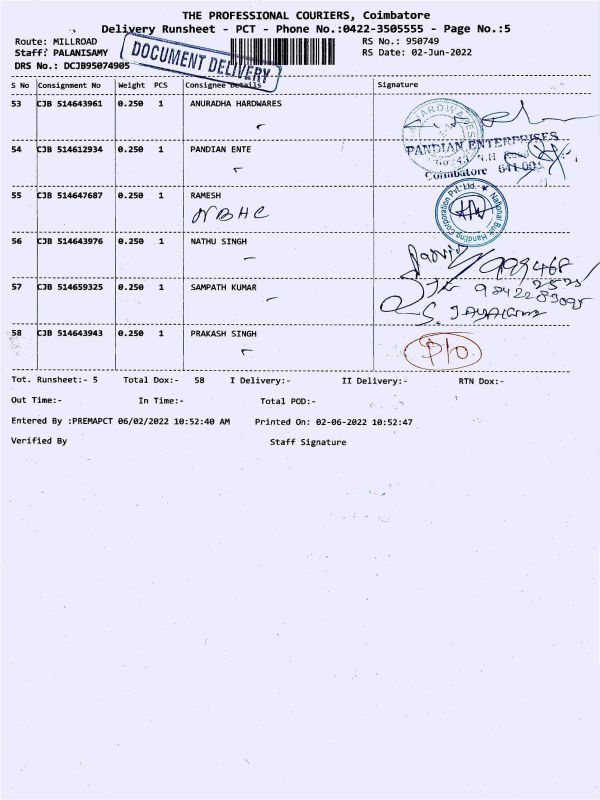 THE PROFESSIONAL COURIERS, Coimbatore
Delivery Runsheet - PCT - Phone No.:0422-3505555 - Page No.:5
Route: MILLROAD RS No.: 950749
Staff: PALANISAMY RS Date: 02-Jun-2022
DRS No.: DCJB95074905
DOCUMENT DELIVERY
S No Consignment No Weight PCS Consignee Details Signature
53 CJB 514643961 0.250 1 ANURADHA HARDWARES
54 CJB 514612934 0.250 1 PANDIAN ENTE
PANDIAN ENTERPRISES
Coimbatore
55 CJB 514647687 0.250 1 RAMESH
NBHC
National Bulk Handling Corporation Pvt. Ltd.
56 CJB 514643976 0.250 1 NATHU SINGH
57 CJB 514659325 0.250 1 SAMPATH KUMAR
58 CJB 514643943 0.250 1 PRAKASH SINGH
Tot. Runsheet:- 5 Total Dox:- 58 I Delivery:- II Delivery:- RTN Dox:-
Out Time:- In Time:- Total POD:-
Entered By :PREMAPCT 06/02/2022 10:52:40 AM Printed On: 02-06-2022 10:52:47
Verified By Staff Signature